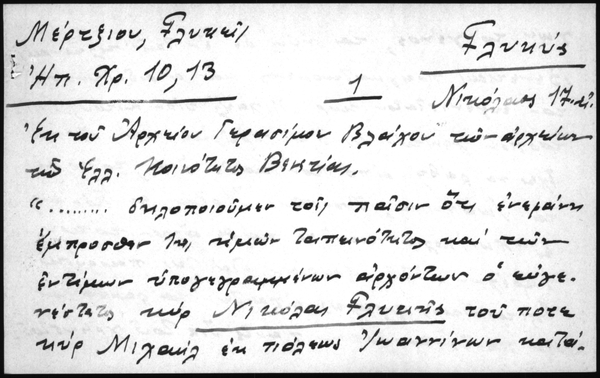 Μέρτζιου, Γλυκεῖς
Γλυκύς
Ἠπ. Χρ. 10, 13
1
Νικόλαος 17
Ἐκ τοῦ Ἀρχείου Γερασίμου Βλάχου τῶν ἀρχείων
τῆς Ἑλλ. Κοινότητος Βενετίας.
"........ δηλοποιοῦμεν τοῖς πᾶσιν ὅτι ἐνεφάνη
ἔμπροσθεν τῆς ἡμῶν ταπεινότητος καὶ τῶν
ἐντίμων ὑπογεγραμμένων ἀρχόντων ὁ εὐγε-
νέστατος κὺρ Νικόλαος Γλυκὺς τοῦ ποτε
κὺρ Μιχαὴλ ἐκ πόλεως Ἰωαννίνων κατα-